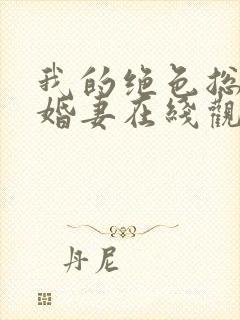 我的绝色总
婚妻在綫觀
丹尼